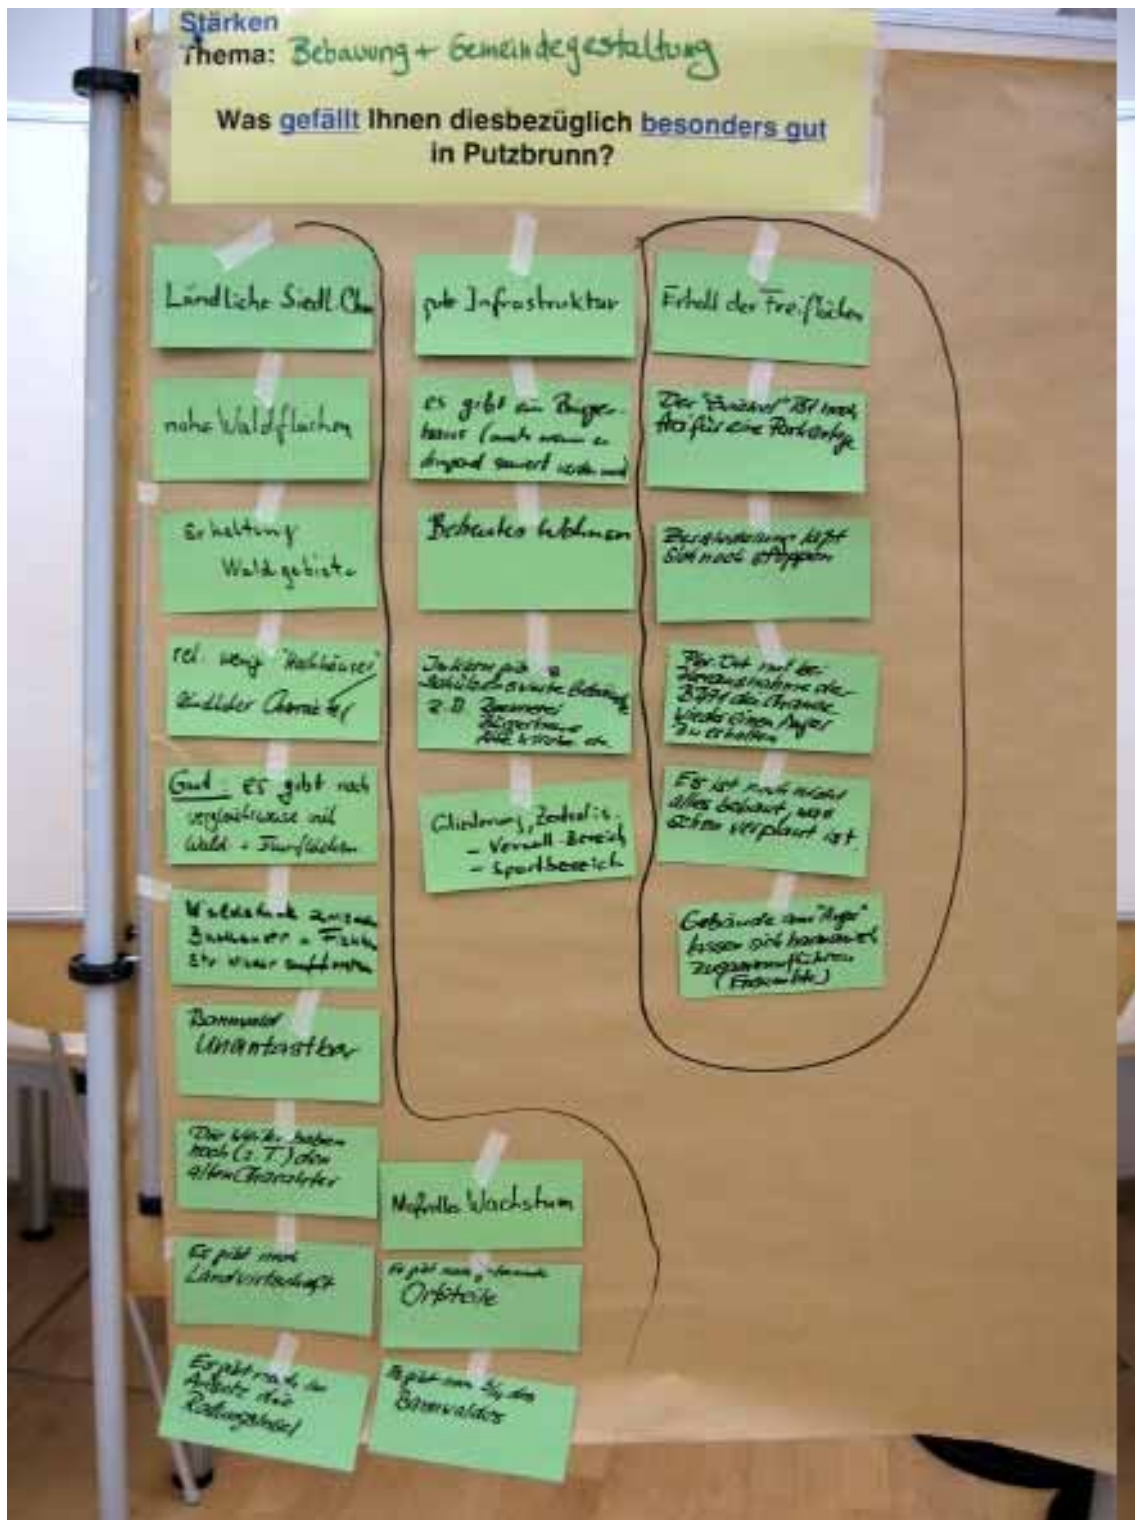 Stärken
Thema: Bebauung + Gemeindegestaltung
Was gefällt Ihnen diesbezüglich besonders gut
in Putzbrunn?
Ländliche Siedl. Cha
nahe Waldflächen
Erhaltung
Waldgebiete
rel. wenig "Hochhäuser"
ländlicher Charakter
Gut: es gibt noch
vergleichsweise viel
Wald +
Waldstück
Str
Bannwald
Unantastbar
Die Weiler haben
noch (z.T.) den
alten Charakter
Es gibt noch
Landwirtschaft
Es gibt noch im
Ansatz die
Rodungsinsel
gute Infrastruktur
es gibt ein Bürger-
haus (auch wenn es
dringend saniert werden muß
Betreutes Wohnen
schützenswerte Gebäude
z.B.
Bürgerhaus
Alte Kirche etc.
Gliederung, Zentralis.
- Verwalt.-Bereich
- Sportbereich
Maßvolles Wachstum
Es gibt noch
Ortsteile
Es gibt noch des
Bannwaldes
Erhalt der Freiflächen
Der "Zwickel" ist noch
frei für eine Parkanlage
Zersiedelung läßt
sich noch stoppen
Der Ort hat bei
Herausnahme der
die Chance
wieder einen Anger
zu erhalten
Es ist noch nicht
alles bebaut, was
schon verplant ist.
Gebäude am "Anger"
lassen sich harmonisch
zusammenführen
(Ensemble)